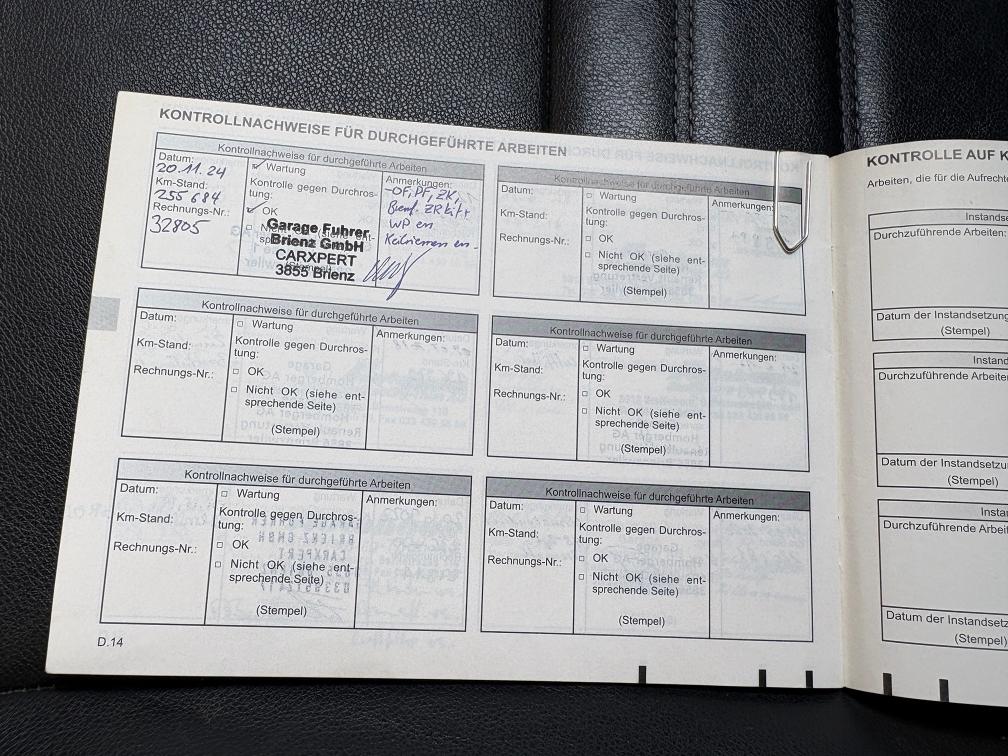 KONTROLLNACHWEISE FÜR DURCHGEFÜHRTE ARBEITEN
Kontrollnachweise für durchgeführte Arbeiten
Datum:
20.11.24
Km-Stand:
255 684
Rechnungs-Nr.:
32805
Wartung
Kontrolle gegen Durchros-
tung:
OK
Garage Fuhrer
Brienz GmbH
CARXPERT
3855 Brienz
Anmerkungen:
-OF, PF, ZK,
WP en
Keilriemen en-
Kontrollnachweise für durchgeführte Arbeiten
Datum:
Km-Stand:
Rechnungs-Nr.:
Wartung
Kontrolle gegen Durchros-
tung:
OK
Nicht OK (siehe ent-
sprechende Seite)
(Stempel)
Anmerkungen:
Kontrollnachweise für durchgeführte Arbeiten
Datum:
Km-Stand:
Rechnungs-Nr.:
Wartung
Kontrolle gegen Durchros-
tung:
OK
Nicht OK (siehe ent-
sprechende Seite)
(Stempel)
Anmerkungen:
Kontrollnachweise für durchgeführte Arbeiten
Datum:
Km-Stand:
Rechnungs-Nr.:
Wartung
Kontrolle gegen Durchros-
tung:
OK
Nicht OK (siehe ent-
sprechende Seite)
(Stempel)
Anmerkungen:
Kontrollnachweise für durchgeführte Arbeiten
Datum:
Km-Stand:
Rechnungs-Nr.:
Wartung
Kontrolle gegen Durchros-
tung:
OK
Nicht OK (siehe ent-
sprechende Seite)
(Stempel)
Anmerkungen:
Kontrollnachweise für durchgeführte Arbeiten
Datum:
Km-Stand:
Rechnungs-Nr.:
Wartung
Kontrolle gegen Durchros-
tung:
OK
Nicht OK (siehe ent-
sprechende Seite)
(Stempel)
Anmerkungen:
D.14
KONTROLLE AUF K
Arbeiten, die für die Aufrechte
Instandse
Durchzuführende Arbeiten:
Datum der Instandsetzung
(Stempel)
Instand
Durchzuführende Arbeiten
Datum der Instandsetzu
(Stempel)
Insta
Durchzuführende Arbeit
Datum der Instandsetz
(Stempel)